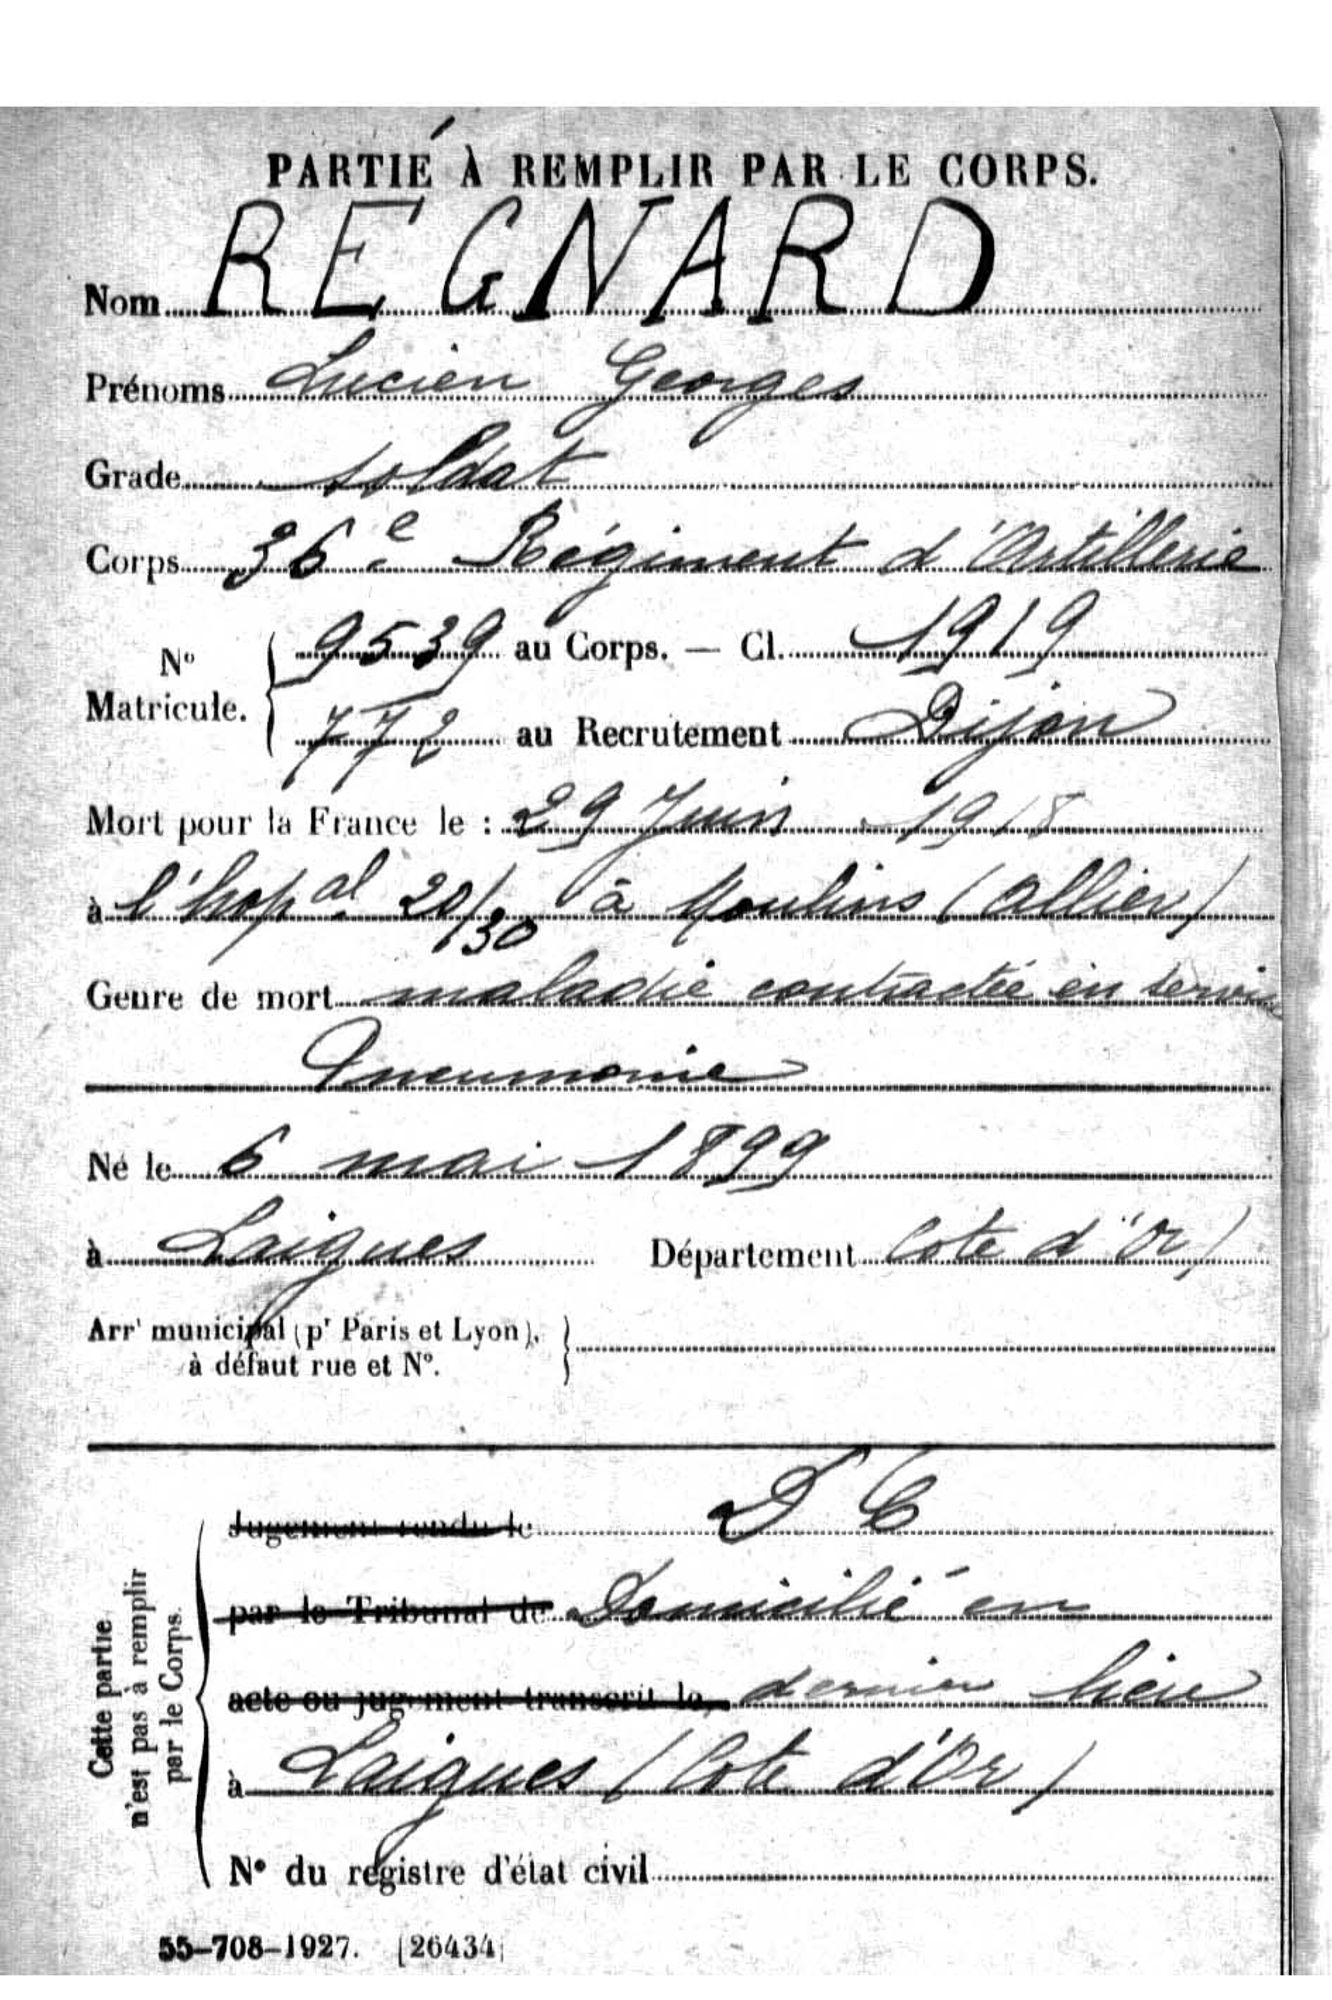 PARTIÉ À REMPLIR PAR LE CORPS.
Nom REGNARD
Prénoms Lucien Georges
Grade soldat
Corps 36e Régiment d'Artillerie
N° Matricule. { 9539 au Corps. — Cl. 1919
772 au Recrutement Dijon
Mort pour la France le : 29 Juin 1918
à l'hopal 20/30 à Moulins (Allier)
Genre de mort maladie contractée en service
Pneumonie
Né le 6 mai 1899
à Laignes Département Cote d'Or)
Arrt municipal (pr Paris et Lyon), à défaut rue et N°. }
Jugement rendu le D C
par le Tribunal de Domicilié en
acte ou jugement transcrit le dernier lieu
à Laignes (Cote d'Or)
N° du registre d'état civil
Cette partie n'est pas à remplir par le Corps.
55-708-1927. [26434]